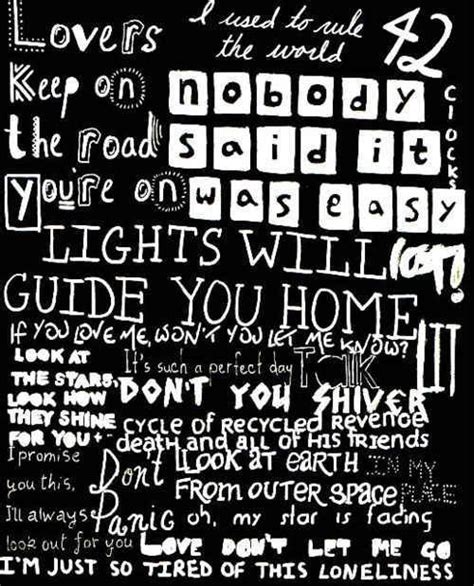 Lovers
I used to rule
the world
42
Keep on
nobody
CLOCKS
the road
said it
you're on
was easy
LIGHTS WILL
lost!
GUIDE YOU HOME
IF YOU LOVE ME, WON'T YOU LET ME KNOW?
LOOK AT
THE STARS,
LOOK HOW
THEY SHINE
FOR YOU
It's such a perfect day
Talk
DON'T YOU SHIVER
CYCLE OF RECYCLED REVENGE
death and all of his friends
I promise
you this,
I'll always
look out for you
Don't
Panic
LOOK AT EARTH
FROM OUTER SPACE
IN MY
PLACE
oh, my star is fading
LOVE DON'T LET ME GO
I'M JUST SO TIRED OF THIS LONELINESS